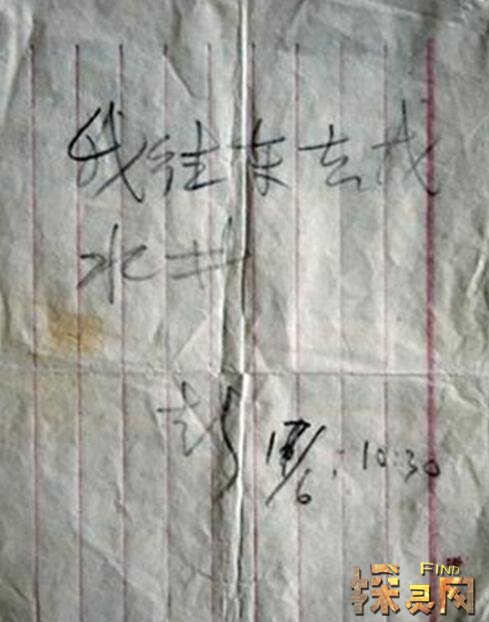 我往东去找
水井
彭
17/6:10:30
FIND
探灵网